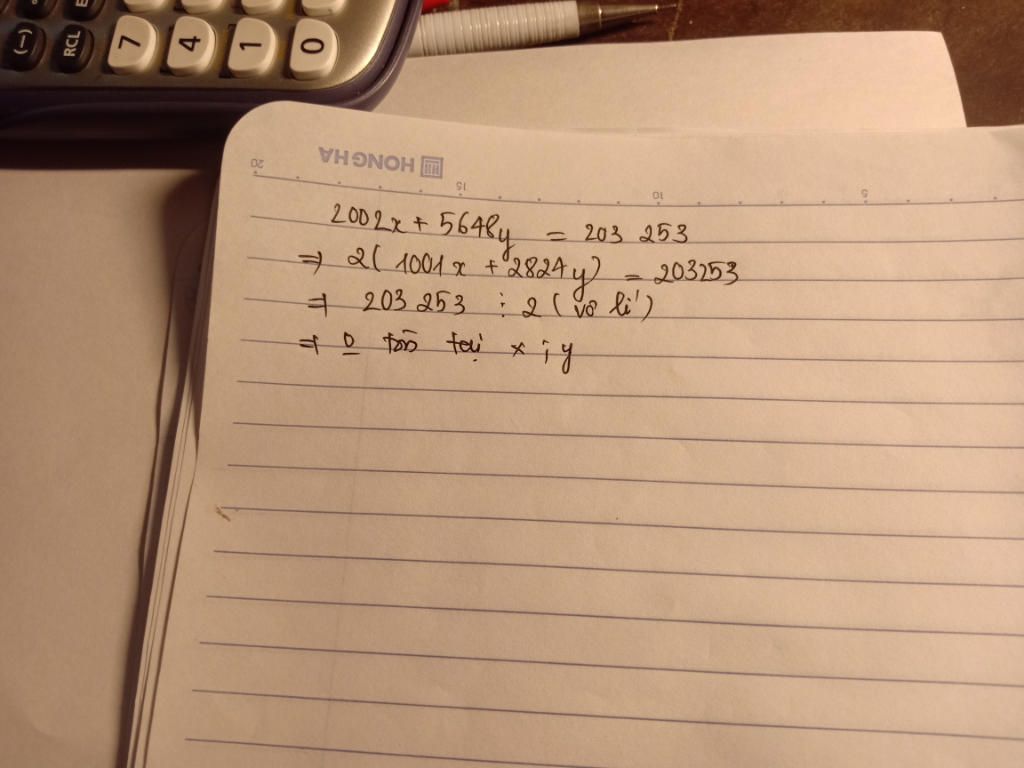 (-) RCL 7 4 1 0
HONG HA
20 15 10 5
2002x + 5648y = 203 253
⇒ 2( 1001x + 2824y) = 203253
⇒ 203 253 ⋮ 2 ( vô lí )
⇒ o tồn tại x ; y